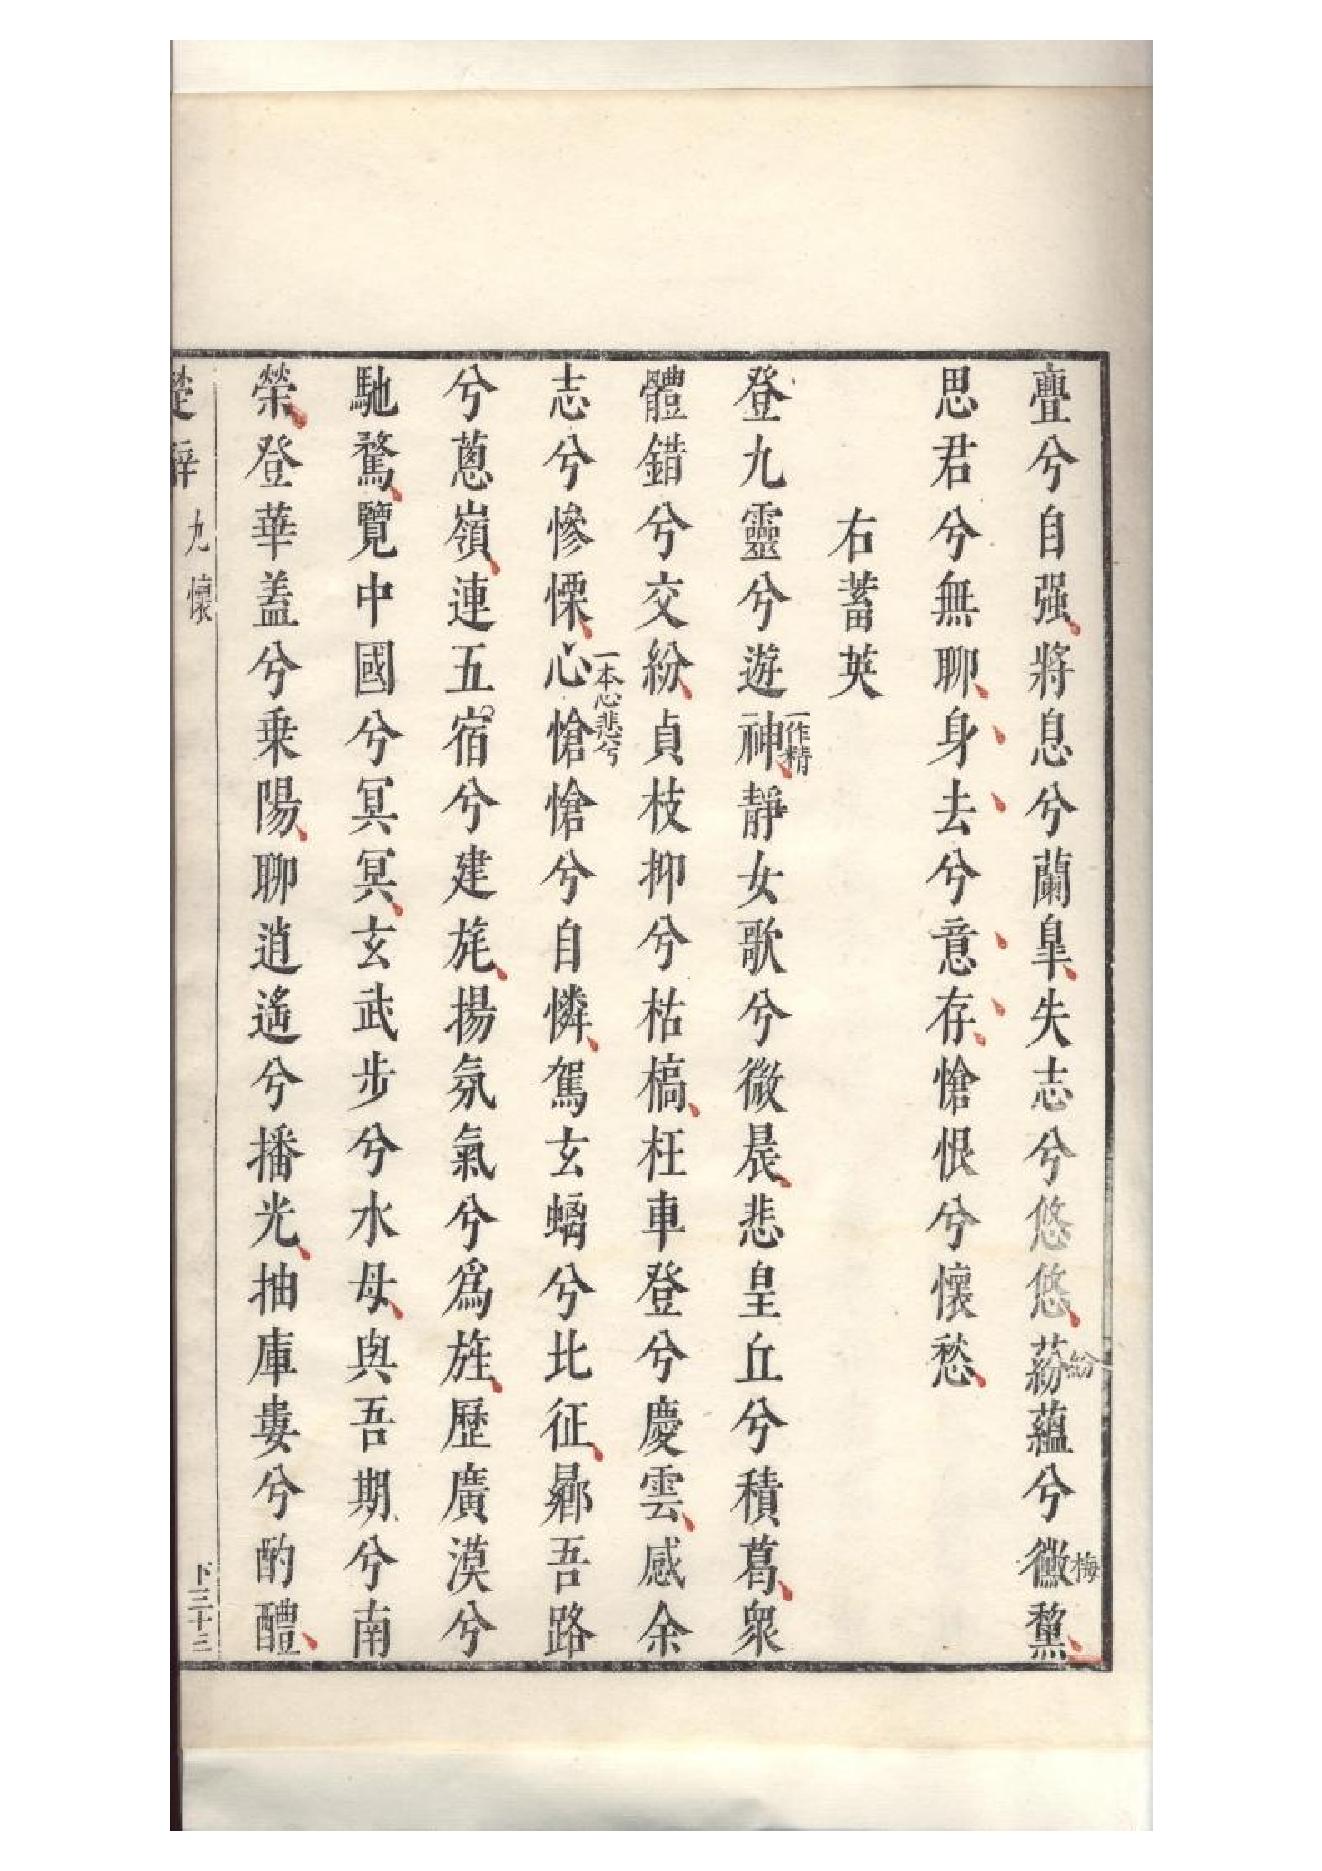 亹兮自强將息兮蘭臯失志兮悠悠蒶紛蘊兮黴梅黧
思君兮無聊身去兮意存愴恨兮懷愁
右蓄英
登九靈兮遊神一作精靜女歌兮微晨悲皇丘兮積葛衆
體錯兮交紛貞枝抑兮枯槁枉車登兮慶雲感余
志兮慘慄一本心悲兮心愴愴兮自憐駕玄螭兮北征曏吾路
兮蔥嶺連五宿兮建旄揚氛氣兮爲旌歷廣漠兮
馳騖覽中國兮冥冥玄武步兮水母與吾期兮南
榮登華蓋兮乗陽聊逍遙兮播光抽庫婁兮酌醴
楚辭 九懷 下三十三